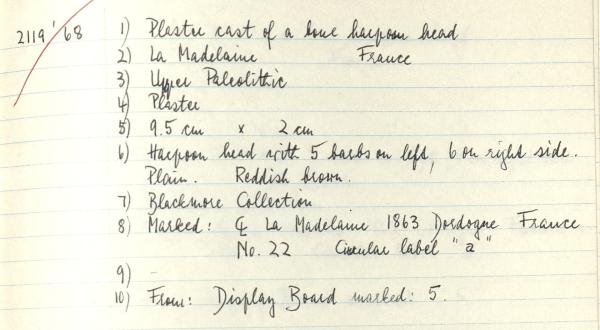 2119'68 1) Plaster cast of a bone harpoon head
2) La Madelaine France
3) Upper Paleolithic
4) Plaster
5) 9.5 cm x 2 cm
6) Harpoon head with 5 barbs on left, 6 on right side.
Plain. Reddish brown.
7) Blackmore Collection
8) Marked: La Madelaine 1863 Dordogne France
No. 22 Circular label "a"
9) -
10) From: Display Board marked: 5.